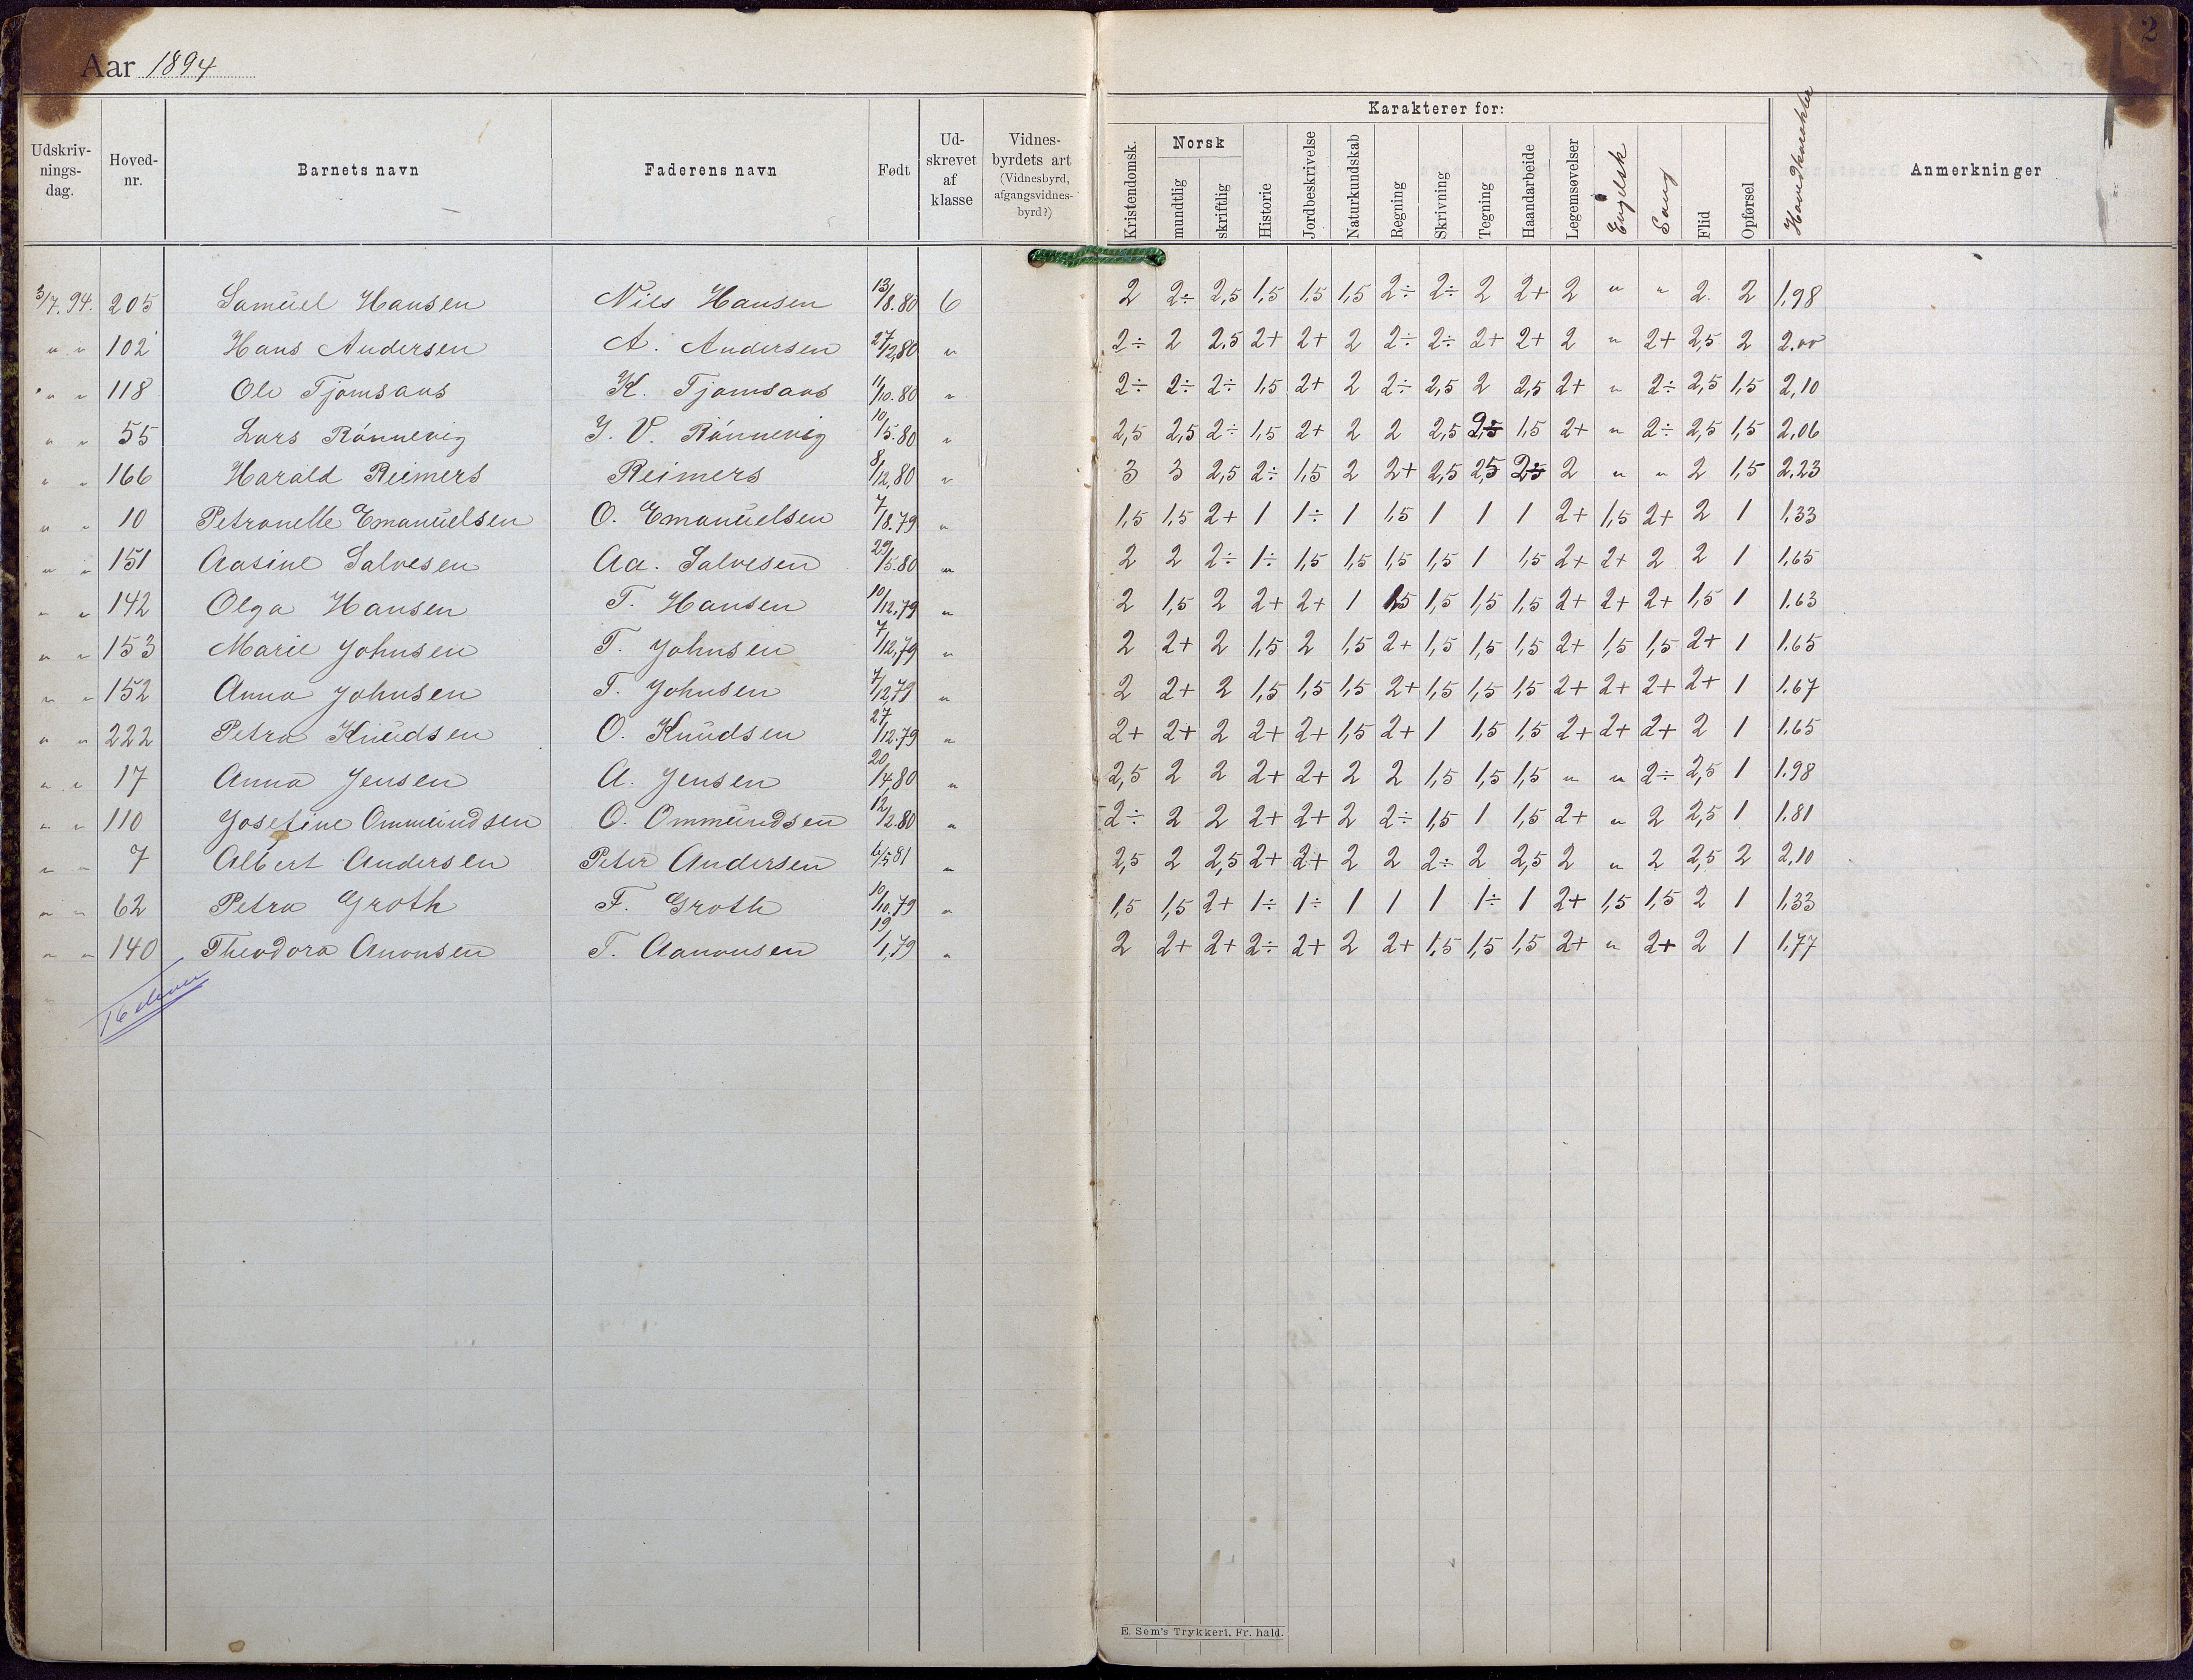 2
Aar 1894
Karakterer for:
Udskriv-nings-dag. Hoved-nr. Barnets navn Faderens navn Født Ud-skrevet af klasse Vidnes-byrdets art (Vidnesbyrd, afgangsvidnes-byrd?) Kristendomsk. Norsk mundtlig skriftlig Historie Jordbeskrivelse Naturkundskab Regning Skrivning Tegning Haandarbeide Legemsøvelser Engelsk Sang Flid Opførsel Hovedkarakter Anmerkninger
3/7.94. 205 Samuel Hansen Nils Hansen 13/8.80 6 2 2÷ 2,5 1,5 1,5 1,5 2÷ 2÷ 2 2+ 2 " " 2 2 1,98
" " 102 Hans Andersen A. Andersen 27/12,80 " 2÷ 2 2.5 2+ 2+ 2 2÷ 2÷ 2+ 2+ 2 " 2+ 2,5 2 2.00
" " 118 Ole Tjomsaas K. Tjomsaas 11/10.80 " 2÷ 2÷ 2÷ 1,5 2+ 2 2÷ 2,5 2 2,5 2+ " 2÷ 2,5 1,5 2,10
" " 55 Lars Rönnevig J. V. Rönnevig 10/5.80 " 2,5 2,5 2÷ 1,5 2+ 2 2 2,5 2,5 1,5 2+ " 2÷ 2,5 1,5 2,06
" " 166 Harald Reimers Reimers 8/12,80 " 3 3 2,5 2÷ 1,5 2 2+ 2,5 2,5 2÷ 2 " " 2 1,5 2,23
" " 10 Petronelle Emanuelsen O. Emanuelsen 7/8.79 " 1,5 1,5 2+ 1 1÷ 1 1,5 1 1 1 2+ 1,5 2+ 2 1 1,33
" " 151 Aasine Salvesen Aa. Salvesen 29/5.80 " 2 2 2÷ 1÷ 1,5 1,5 1,5 1,5 1 1,5 2+ 2+ 2 2 1 1,65
" " 142 Olga Hansen T. Hansen 10/12,79 " 2 1,5 2 2+ 2+ 1 1,5 1,5 1,5 1,5 2+ 2+ 2+ 1,5 1 1.63
" " 153 Marie Johnsen T. Johnsen 7/12,79 " 2 2+ 2 1,5 2 1,5 2+ 1,5 1,5 1,5 2+ 1,5 1,5 2+ 1 1.65
" " 152 Anna Johnsen T. Johnsen 7/12,79 " 2 2+ 2 1,5 1,5 1,5 2+ 1,5 1,5 1,5 2+ 2+ 2+ 2+ 1 1.67
" " 222 Petra Knudsen O. Knudsen 27/12.79 " 2+ 2+ 2 2+ 2+ 1,5 2+ 1 1,5 1,5 2+ 2+ 2+ 2 1 1.65
" " 17 Anna Jensen A. Jensen 20/4,80 " 2,5 2 2 2+ 2+ 2 2 1,5 1,5 1,5 " " 2÷ 2,5 1 1.98
" " 110 Josefine Ommundsen O. Ommundsen 12/2.80 " 2÷ 2 2 2+ 2+ 2 2÷ 1,5 1 1,5 2+ " 2 2,5 1 1.81
" " 7 Albert Andersen Peter Andersen 6/5 81 " 2,5 2 2,5 2+ 2+ 2 2 2÷ 2 2,5 2 " 2 2,5 2 2,10
" " 62 Petra Groth F. Groth 10/10,79 " 1,5 1,5 2+ 1÷ 1÷ 1 1 1 1÷ 1 2+ 1,5 1,5 2 1 1,33
" " 140 Theodora Anonsen T. Aanonsen 19/1,79 " 2 2+ 2+ 2÷ 2+ 2 2+ 1,5 1,5 1,5 2+ " 2+ 2 1 1.77
16 elever
E. Sem's Trykkeri, Fr. hald.